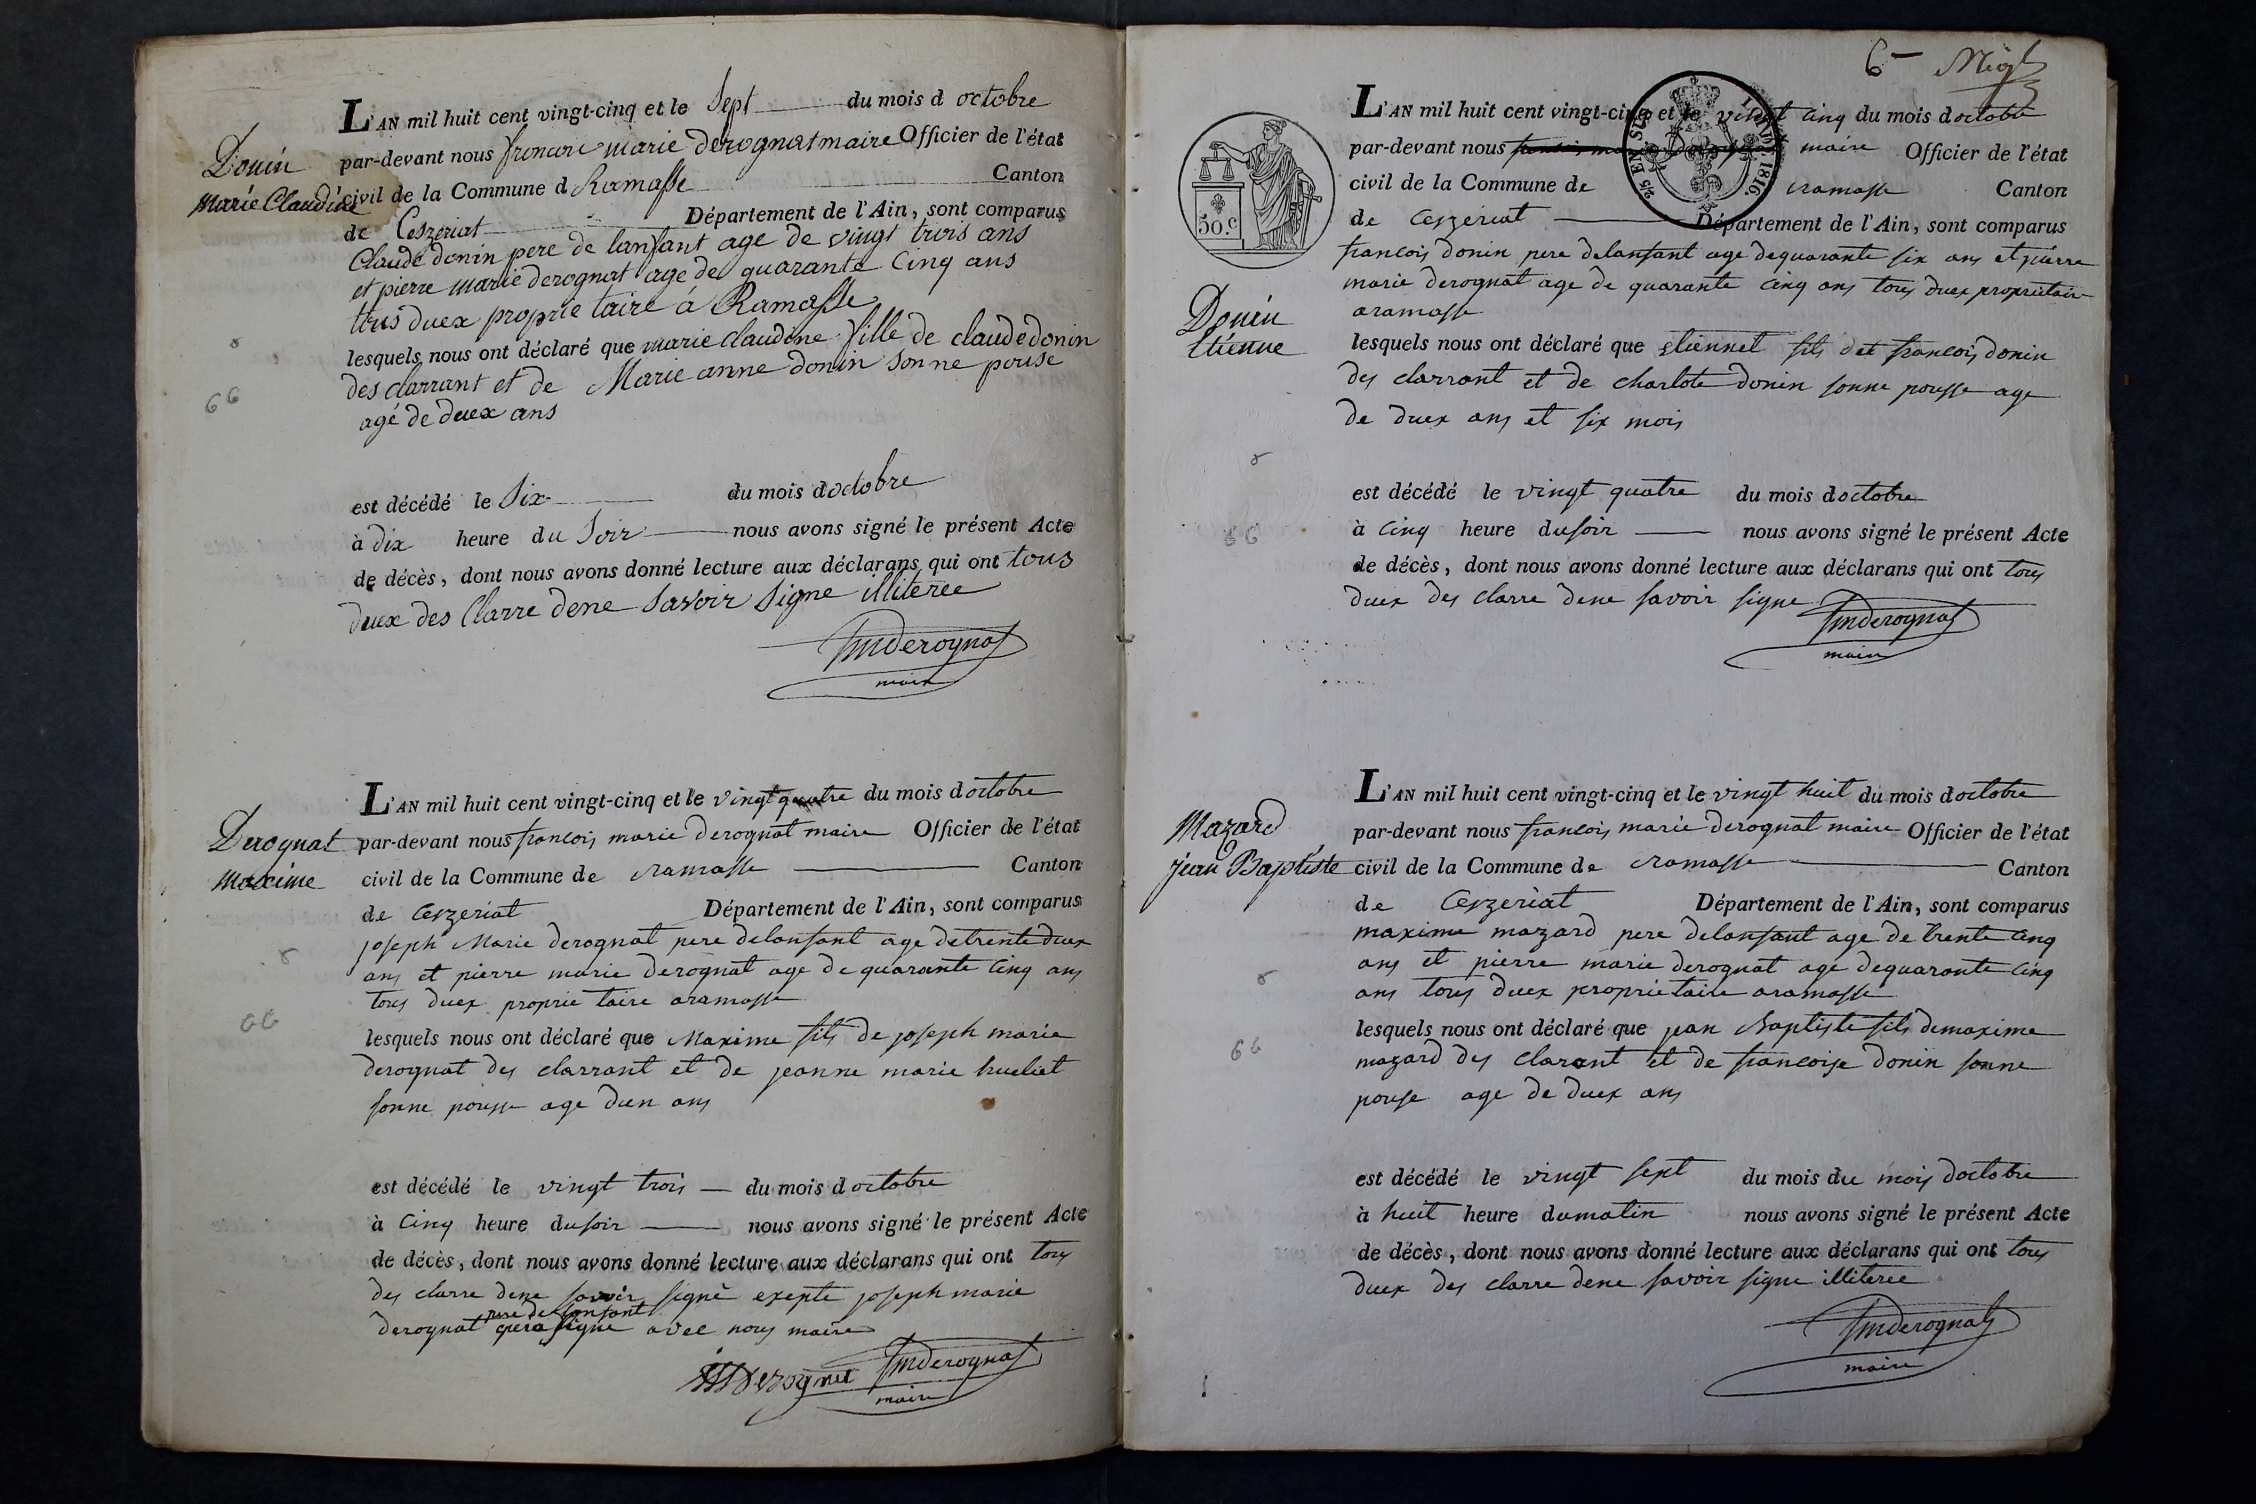 L'AN mil huit cent vingt-cinq et le Sept du mois d octobre
par-devant nous francoi marie derognat maire Officier de l'état
Donin
Marie Claudine
civil de la Commune d Ramasse Canton
de Ceszeriat Département de l'Ain, sont comparus
Claude donin pere de lanfant age de vingt trois ans
et pierre marie derognat age de quarante Cinq ans
tous duex proprie taire á Ramasse
lesquels nous ont déclaré que marie claudine fille de claude donin
des clarrant et de Marie anne donin son ne pouse
agé de duex ans
66
est décédé le Six du mois doctobre
à dix heure du Soir nous avons signé le présent Acte
de décès, dont nous avons donné lecture aux déclarans qui ont tous
duex des Clarre dene Savoir Signe illiteree
fmderognat
maire
L'AN mil huit cent vingt-cinq et le vingt quatre du mois doctobre
Derognat
Maxime
par-devant nous francois marie derognat maire Officier de l'état
civil de la Commune de ramasse Canton
de Ceszeriat Département de l'Ain, sont comparus
joseph Marie derognat pere delanfant age detrente duex
ans et pierre marie derognat age de quarante Cinq ans
tous duex proprie taire aramasse
66
lesquels nous ont déclaré que Maxime fils de joseph marie
derognat des clarrant et de jeanne marie
sonne pousse age dun ans
est décédé le vingt trois du mois doctobre
à Cinq heure dusoir nous avons signé le présent Acte
de décès, dont nous avons donné lecture aux déclarans qui ont tous
des clarre dene savoir signé exepte joseph marie
pere de lanfant
derognat quia signe avec nous maire
Derognat fmderognat
maire
6
L'AN mil huit cent vingt-cinq et le vingt cinq du mois doctobre
25 EN SUS
LOI DE 1816.
50.c
par-devant nous maire Officier de l'état
civil de la Commune de ramasse Canton
de Ceszeriat Département de l'Ain, sont comparus
francois donin pere delanfant age dequarante six ans et pierre
marie derognat age de quarante Cinq ans tous duex proprietair
aramasse
Donin
Etienne
lesquels nous ont déclaré que etiennet fils det francois donin
des clarrant et de charlote donin sonne pousse age
de duex ans et six mois
est décédé le vingt quatre du mois doctobre
66
à Cinq heure dusoir nous avons signé le présent Acte
de décès, dont nous avons donné lecture aux déclarans qui ont tous
duex des clarre dene savoir signe
fmderognat
maire
L'AN mil huit cent vingt-cinq et le vingt huit du mois doctobre
Mazard
jean Baptiste
par-devant nous francois marie derognat maire Officier de l'état
civil de la Commune de ramasse Canton
de Ceszeriat Département de l'Ain, sont comparus
maxime mazard pere delanfant age de trente Cinq
ans et pierre marie derognat age dequarante Cinq
ans tous duex proprietaire aramasse
66
lesquels nous ont déclaré que jean Baptiste fils demaxime
mazard des clarant et de francoise donin sonne
pouse age de duex ans
est décédé le vingt sept du mois du mois doctobre
à huit heure dumatin nous avons signé le présent Acte
de décès, dont nous avons donné lecture aux déclarans qui ont tous
duex des clarre dene savoir signe illiteree
fmderognat
maire